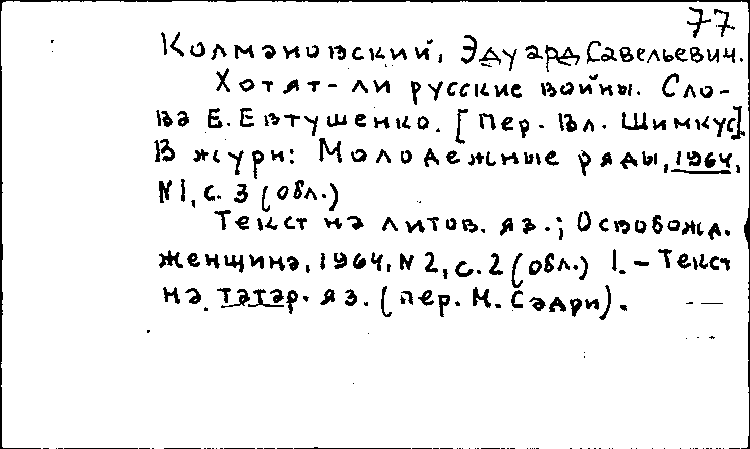 77
Колмановский, Эдуард Савельевич.
Хотят-ли русские войны. Сло-
ва Е. Евтушенко. [Пер. Вл. Шимкус].
В журн: Молодежные ряды, 1964,
N1, с. 3 (обл.)
Текст на литов. яз.; Освобожд.
женщина, 1964, N 2, с. 2 (обл.) 1. – Текст
на татар. яз. (пер. М. Садри).